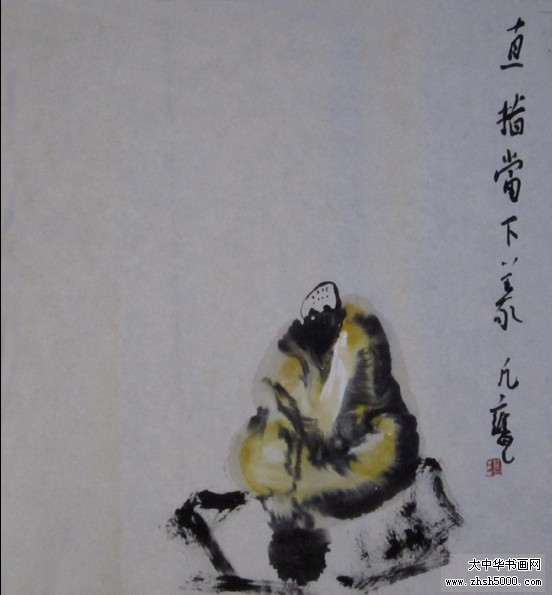 直指當下
凡
大中华书画网
www.zhsh5000.com